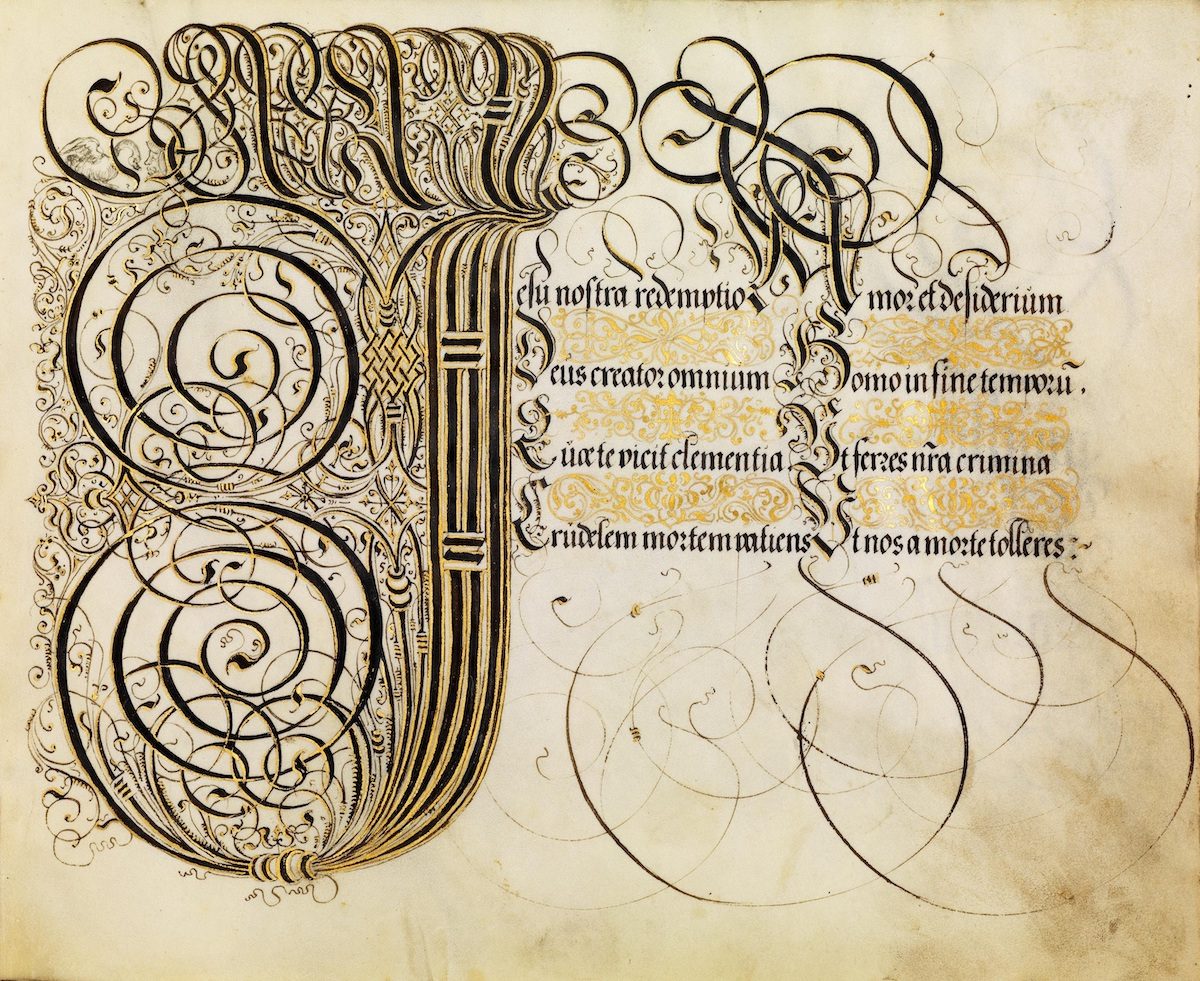 Jesu nostra redemptio Amor et desiderium
Deus creator omnium Homo in fine temporū.
Quæ te vicit clementia. Vt ferres nr̄a crimina
Crudelem mortem patiens Vt nos a morte tolleres:~